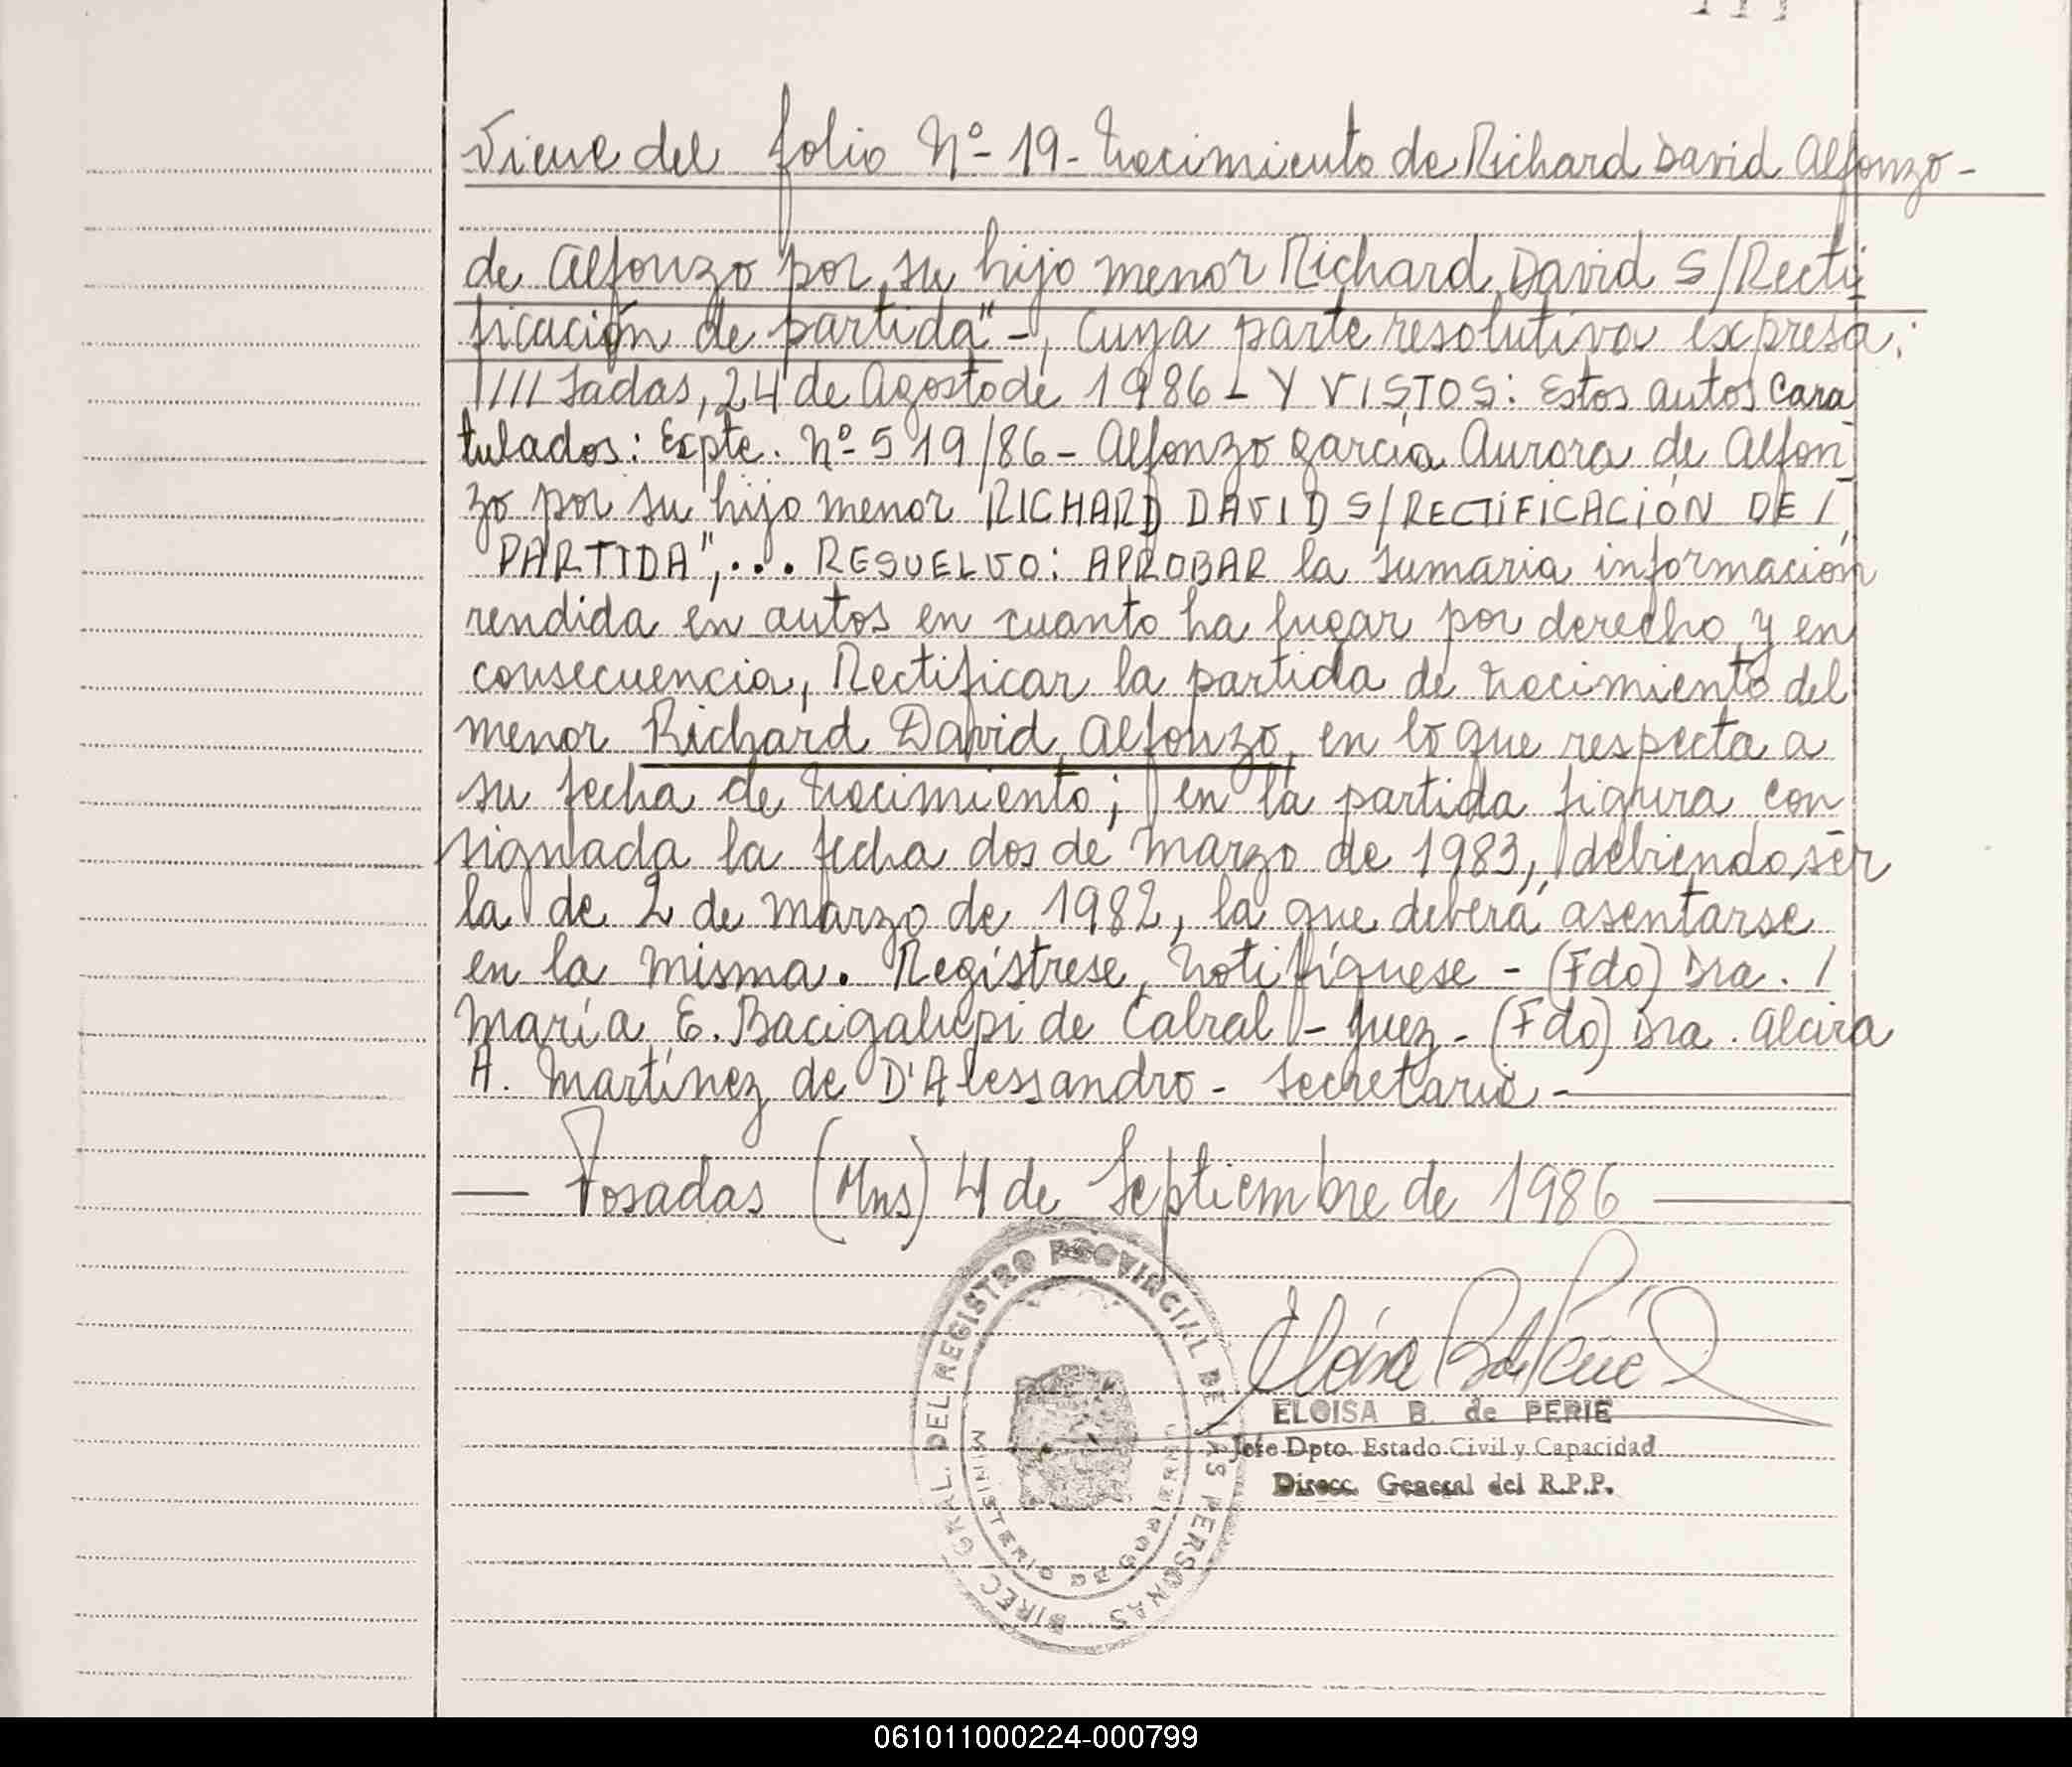 Viene del folio Nº 19 - Nacimiento de Richard David Alfonzo -
de Alfonzo por su hijo menor Richard David S/Recti
ficación de partida" -, cuya parte resolutiva expresa:
"////sadas, 24 de Agosto de 1986 - Y VISTOS: Estos autos cara
tulados: Expte. Nº 519/86 - Alfonzo García Aurora de Alfon
zo por su hijo menor RICHARD DAVID S/RECTIFICACIÓN DE /
PARTIDA", ... RESUELVO: APROBAR la sumaria información
rendida en autos en cuanto ha lugar por derecho y en
consecuencia, Rectificar la partida de nacimiento del
menor Richard David Alfonzo, en lo que respecta a
su fecha de nacimiento; en la partida figura con
signada la fecha dos de marzo de 1983, debiendo ser
la de 2 de marzo de 1982, la que deberá asentarse
en la misma. Regístrese, notifíquese - (Fdo) Dra. /
María E. Bacigalupi de Cabral - Juez - (Fdo) Dra. Alcira
A. Martínez de D'Alessandro - Secretaria -
— Posadas (Mns) 4 de Septiembre de 1986 —
DIREC. GRAL. DEL REGISTRO PROVINCIAL DE LAS PERSONAS
MINISTERIO DE GOBIERNO
ELOISA B. de PERIE
Jefe Dpto. Estado Civil y Capacidad
Direcc. General del R.P.P.
061011000224-000799